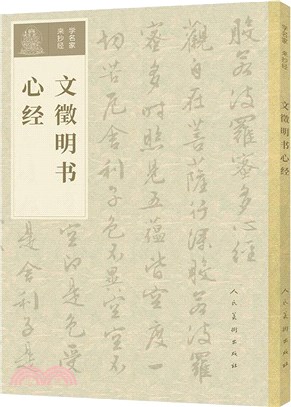 学名家
来抄经
文徵明书
心经
般若波羅蜜多心經
觀自在菩薩行深般若波羅
蜜多時照見五蘊皆空度一
切苦厄舍利子色不異空空不
空即是色受
是舍利子是
人民美術出版社
学名家
来抄经
文徵明书心经
人民美術出版社